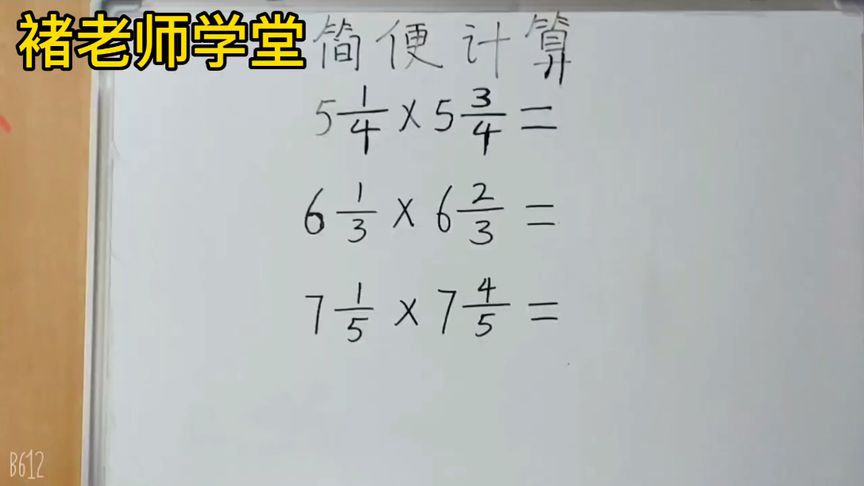 褚老师学堂
简便计算
5 1/4 × 5 3/4 =
6 1/3 × 6 2/3 =
7 1/5 × 7 4/5 =
B612